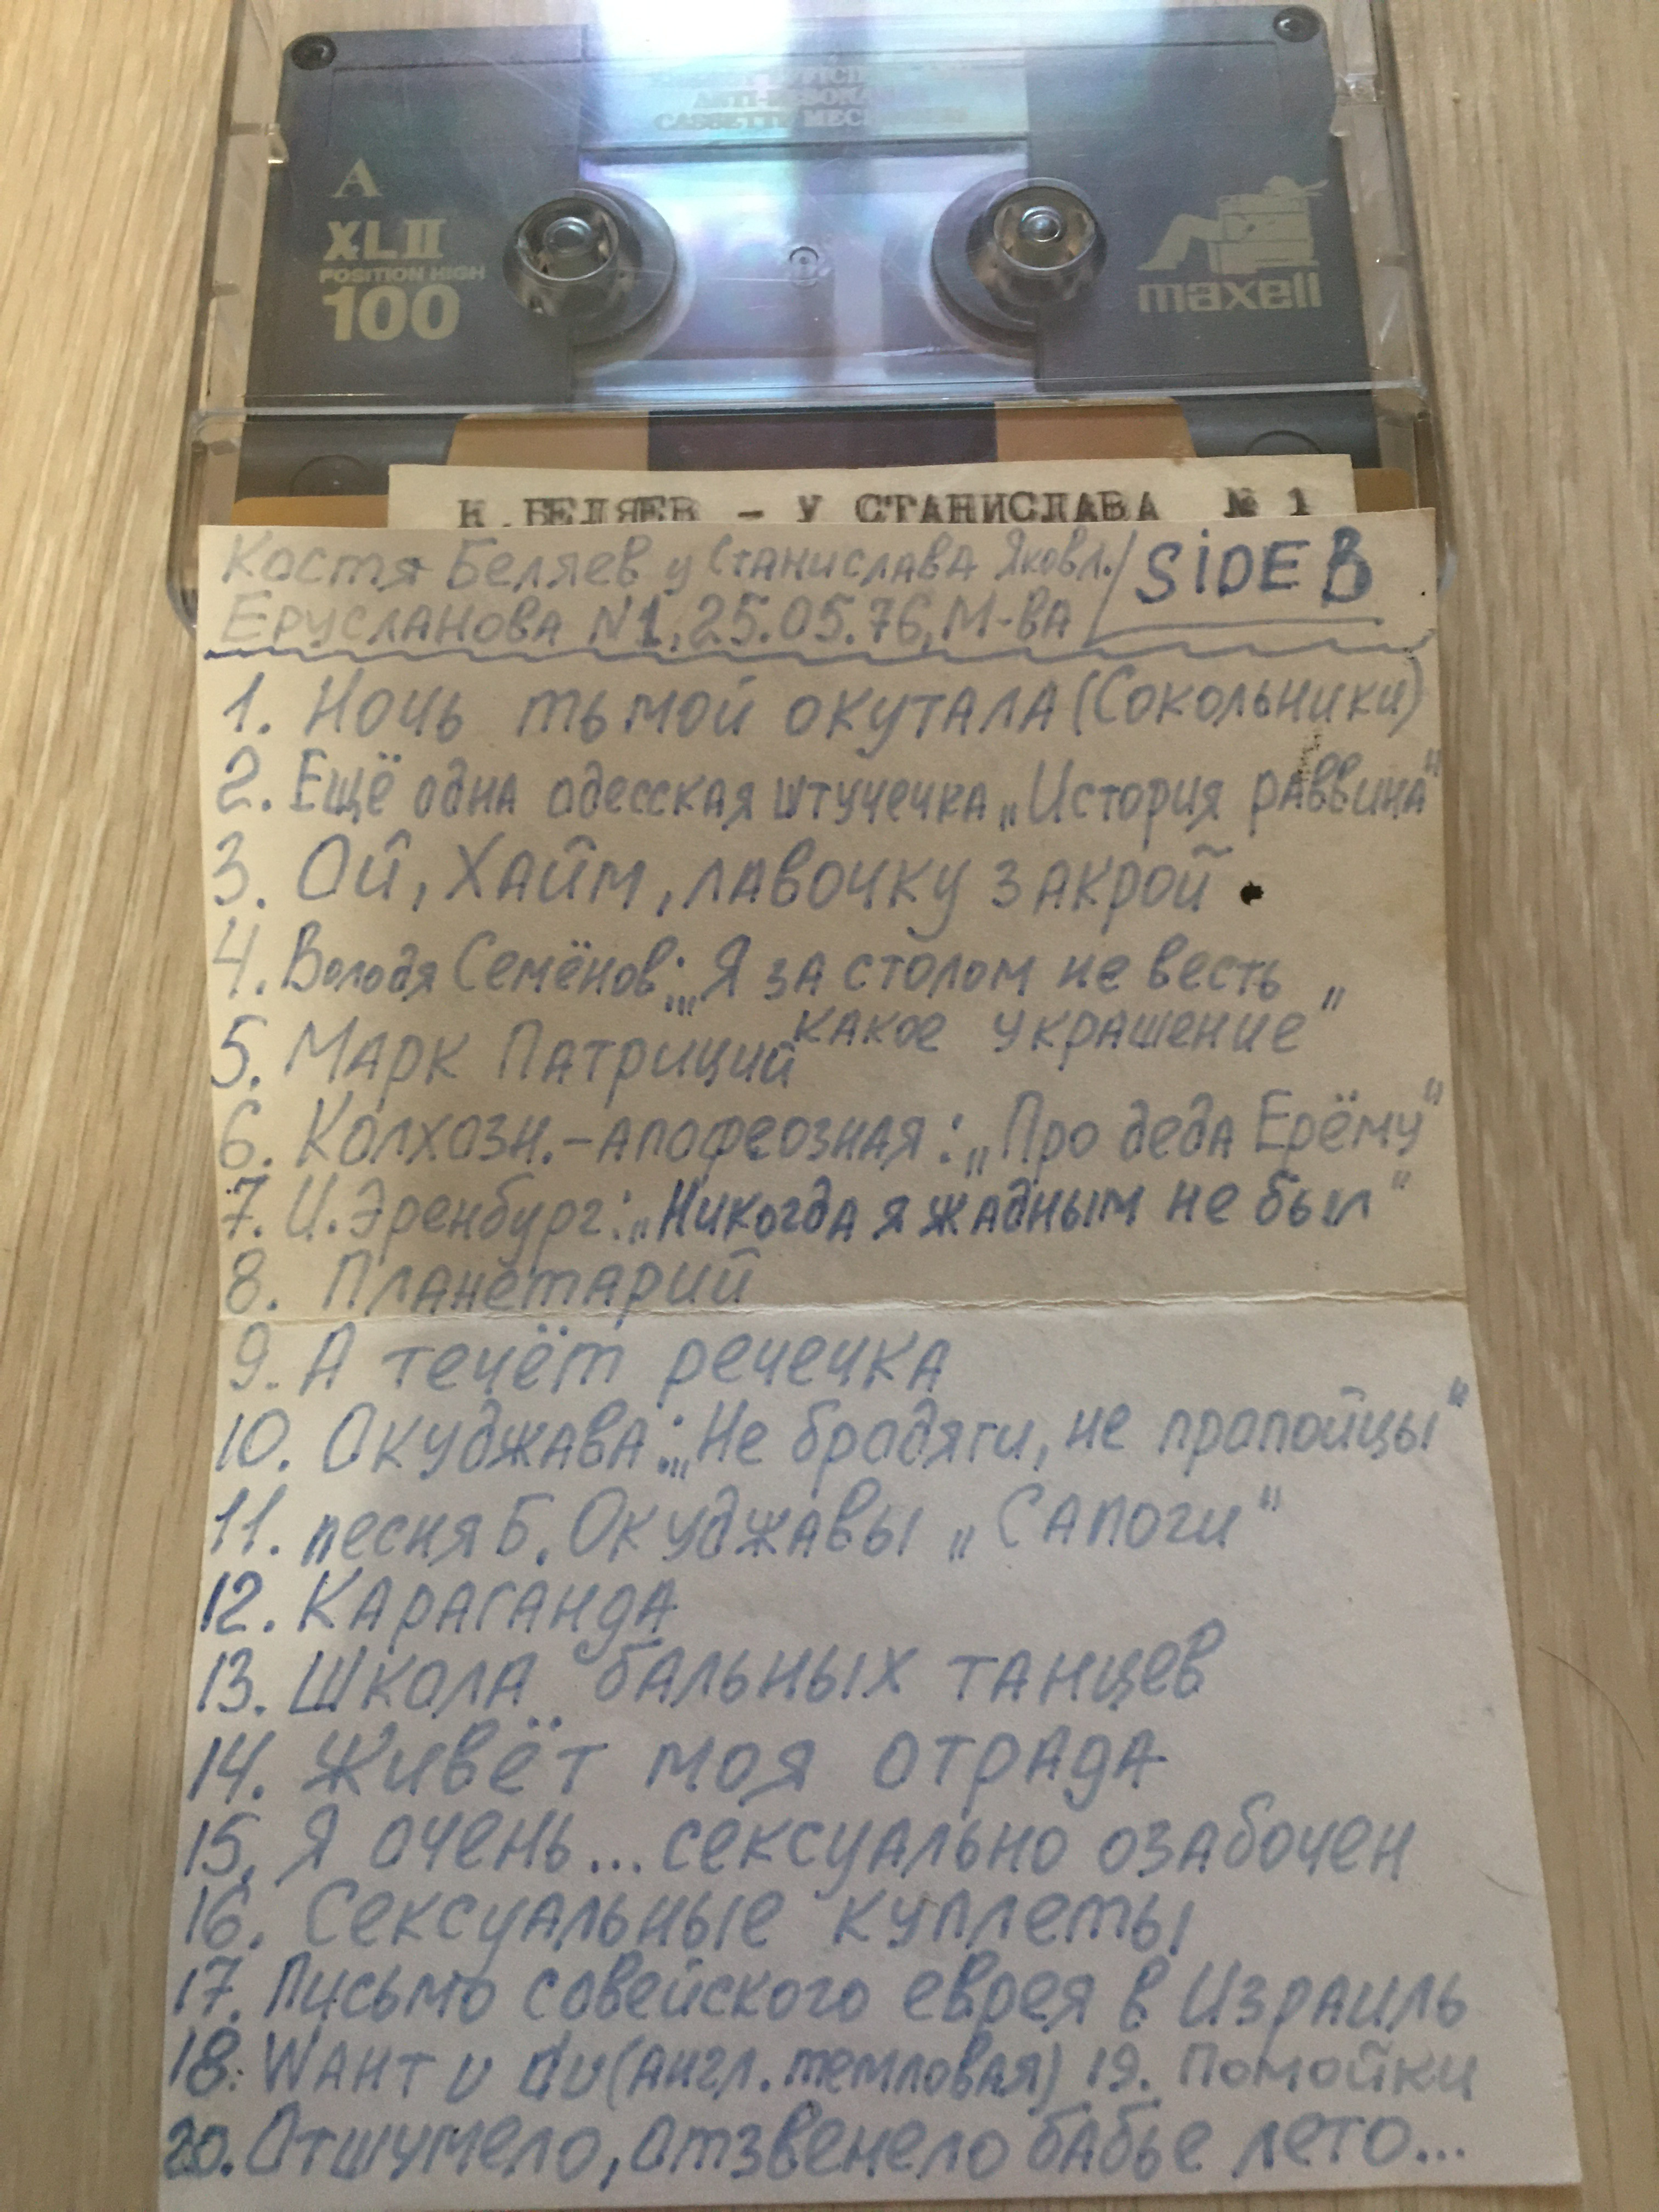 ANTI-RESONA
CASSETTE MECHANISM
A
XLII
POSITION HIGH
100
maxell
К.БЕЛЯЕВ - У СТАНИСЛАВА № 1
Костя Беляев у Станислава Яковл./
Ерусланова N1, 25.05.76, М-ва
SIDE B
1. Ночь тьмой окутала (Сокольники)
2. Ещё одна одесская штучечка „История раввина"
3. Ой, Хайм, лавочку закрой
4. Володя Семёнов: „Я за столом не весть „
какое украшение"
5. Марк Патриций
6. Колхозн.-апофеозная: „Про деда Ерёму"
7. И. Эренбург: „Никогда я жадным не был"
8. Планетарий
9. А течёт речечка
10. Окуджава: „Не бродяги, не пропойцы"
11. песня Б. Окуджавы „Сапоги"
12. Караганда
13. Школа бальных танцев
14. Живёт моя отрада
15. Я очень... сексуально озабочен
16. Сексуальные куплеты
17. Письмо совейского еврея в Израиль
18. Want u du (англ. темповая) 19. Помойки
20. Отшумело, отзвенело бабье лето...